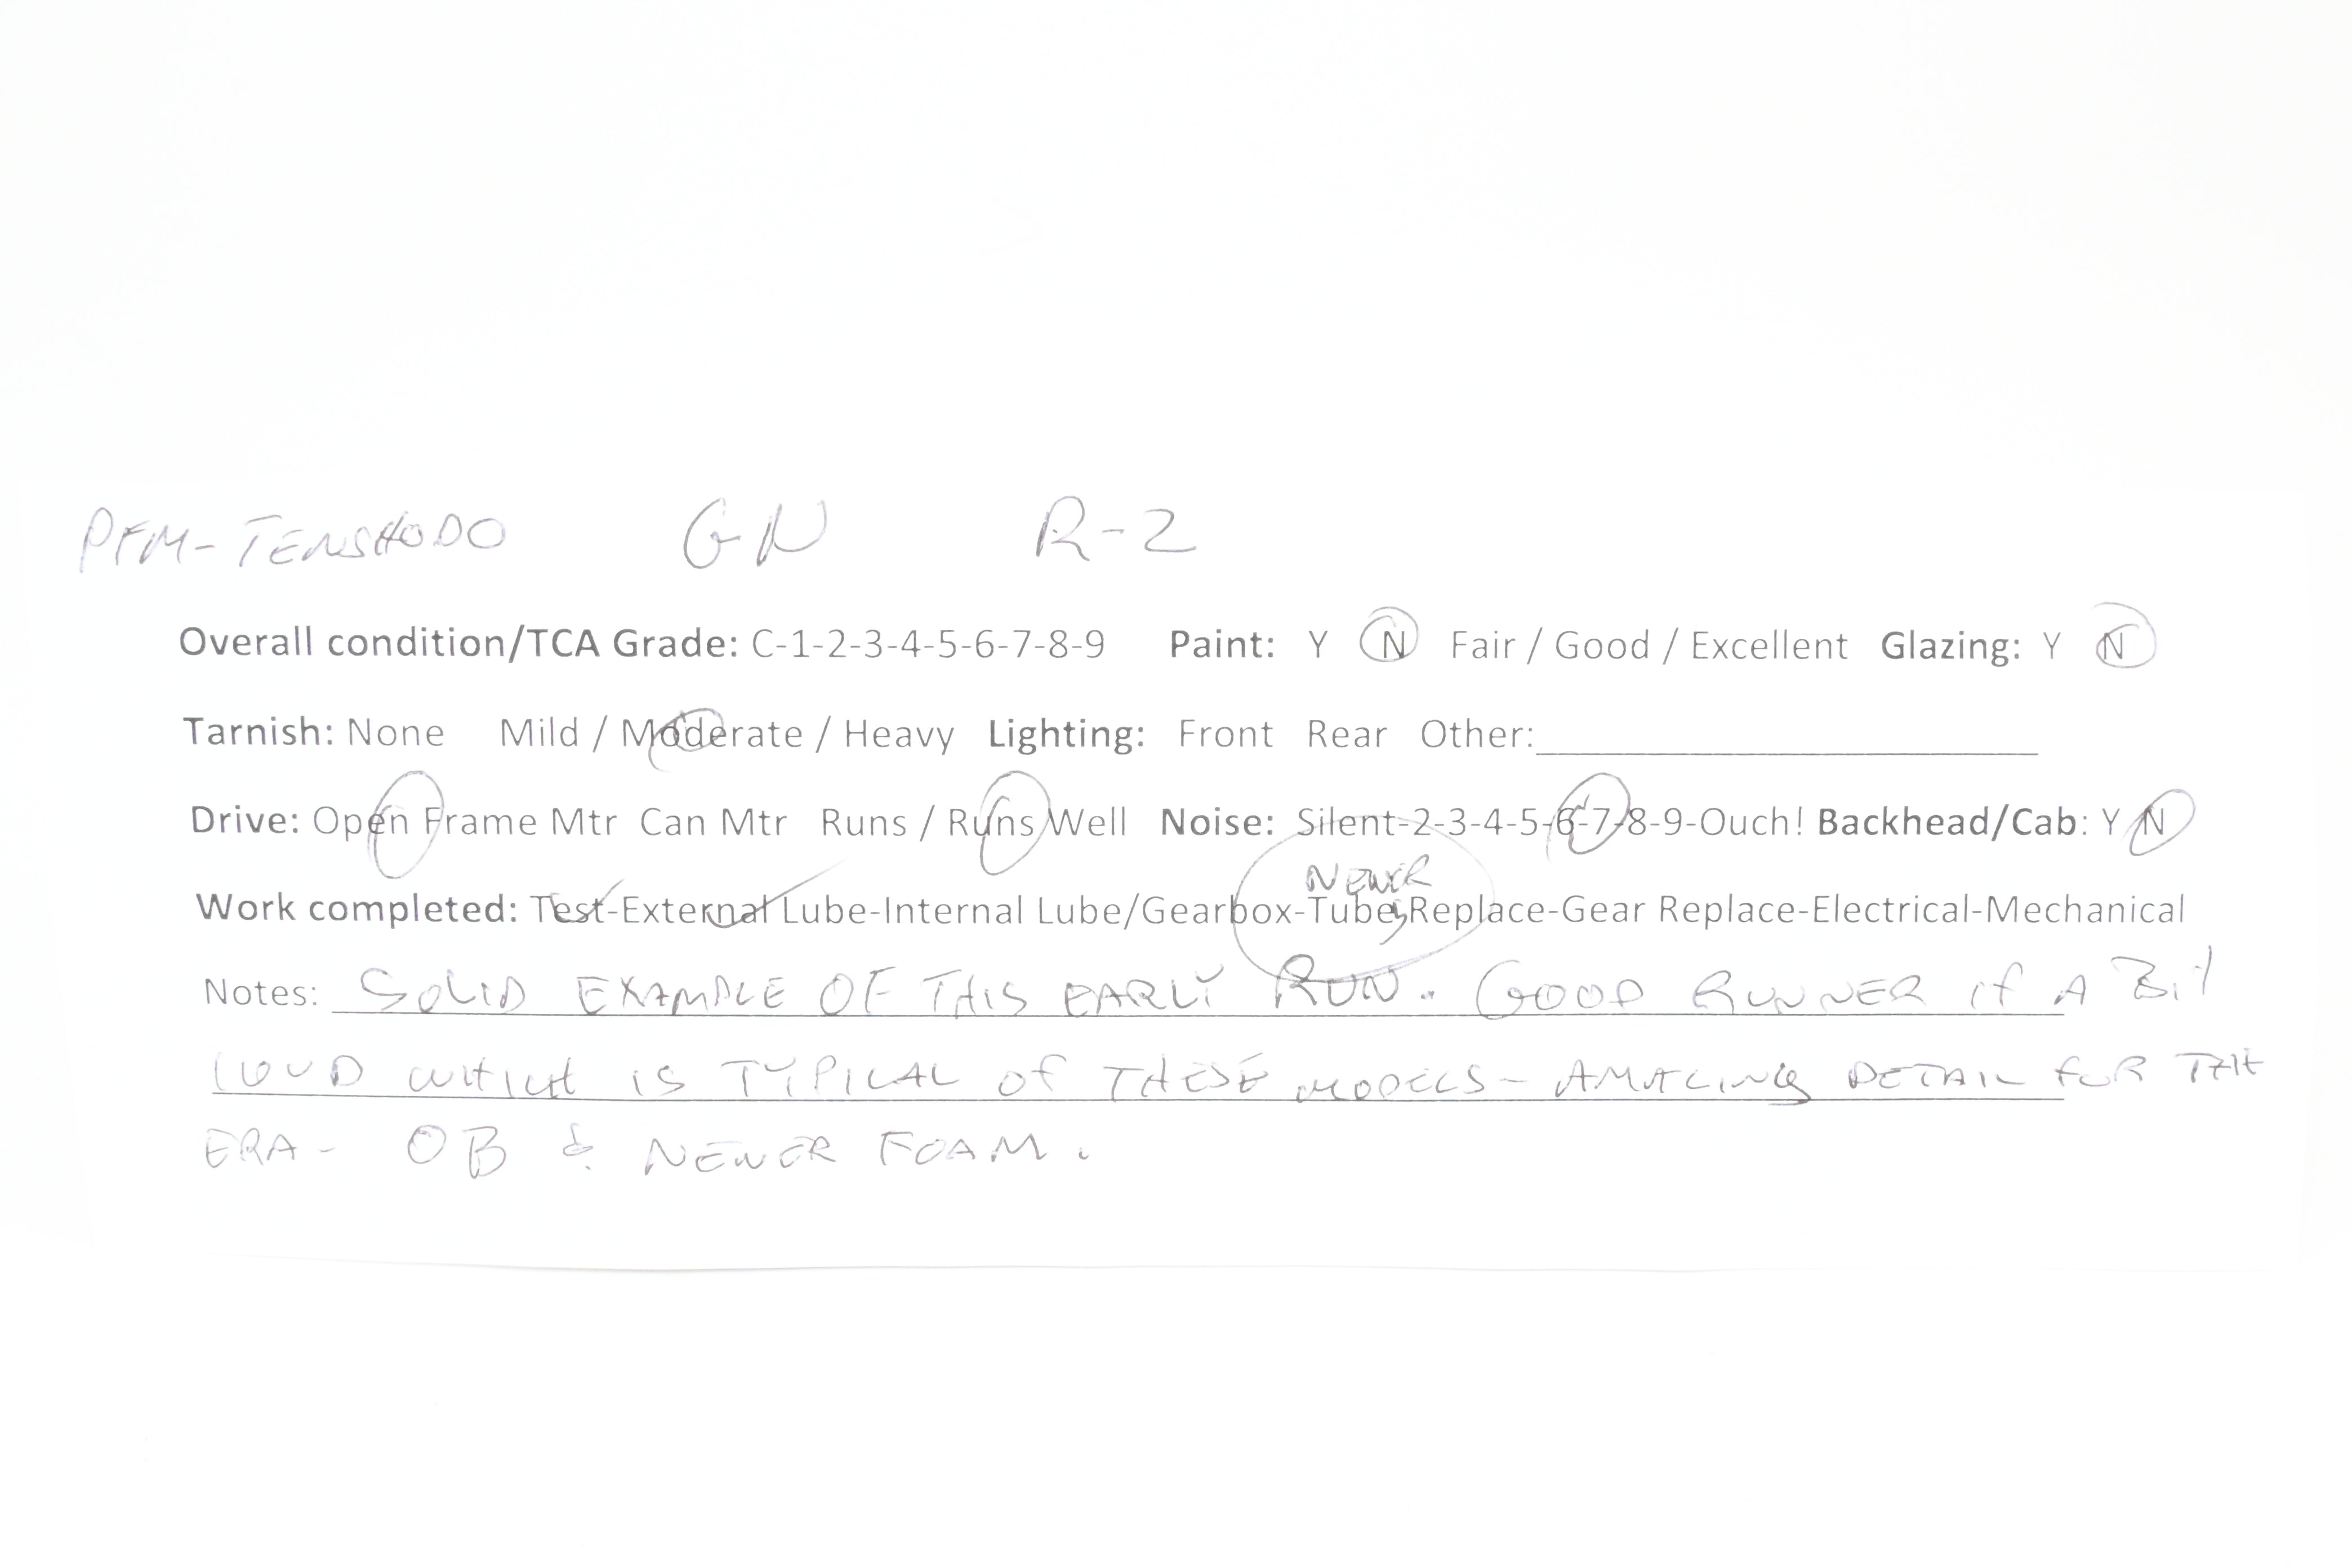 PFM-TENSHODO GN R-2
Overall condition/TCA Grade: C-1-2-3-4-5-6-7-8-9 Paint: Y N Fair / Good / Excellent Glazing: Y N
Tarnish: None Mild / Moderate / Heavy Lighting: Front Rear Other:
Drive: Open Frame Mtr Can Mtr Runs / Runs Well Noise: Silent-2-3-4-5-6-7-8-9-Ouch! Backhead/Cab: Y N
NEWER
Work completed: Test-External Lube-Internal Lube/Gearbox-Tube Replace-Gear Replace-Electrical-Mechanical
Notes: SOLID EXAMPLE OF THIS EARLY RUN. GOOD RUNNER if A Bit
LOUD WHICH iS TYPICAL of THESE MODELS- AMAZING DETAIL FOR THE
ERA- OB & NEWER FOAM.